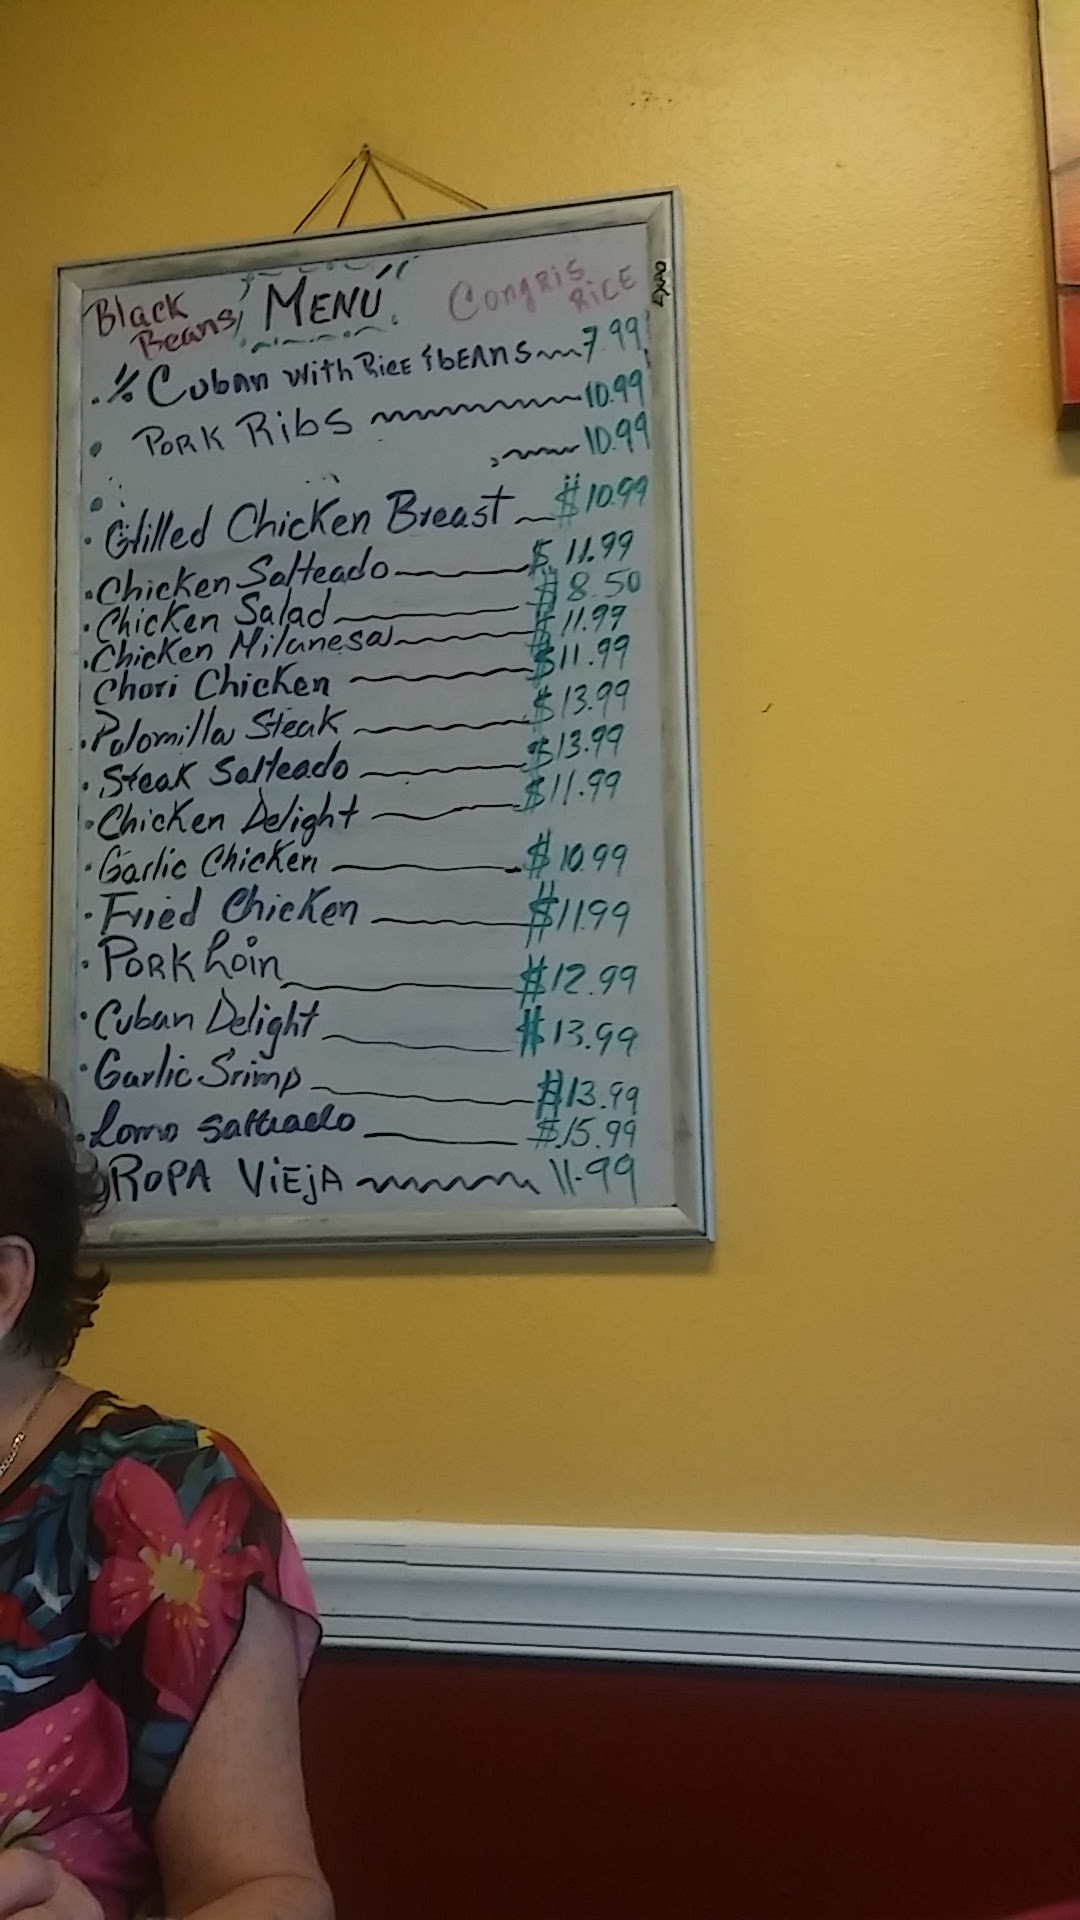 Black Beans, MENÚ Congris Rice
EXPO
. ½ Cuban with Rice & bEANS 7.99
• PORK Ribs 10.99
10.99
• Grilled Chicken Breast $10.99
• Chicken Salteado $11.99
• Chicken Salad $8.50
• Chicken Milanesa $11.99
Chori Chicken $11.99
• Palomilla Steak $13.99
• Steak Salteado $13.99
• Chicken Delight $11.99
• Garlic Chicken $10.99
• Fried Chicken $11.99
• PORK Loin $12.99
• Cuban Delight $13.99
• Garlic Srimp $13.99
• Lomo salteado $15.99
ROPA ViEjA 11.99